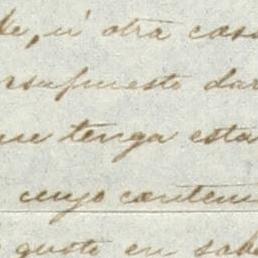 de, u' otra cosa
rsupuesto dar
ue tenga esta
cuyo conten
gusto en sabe